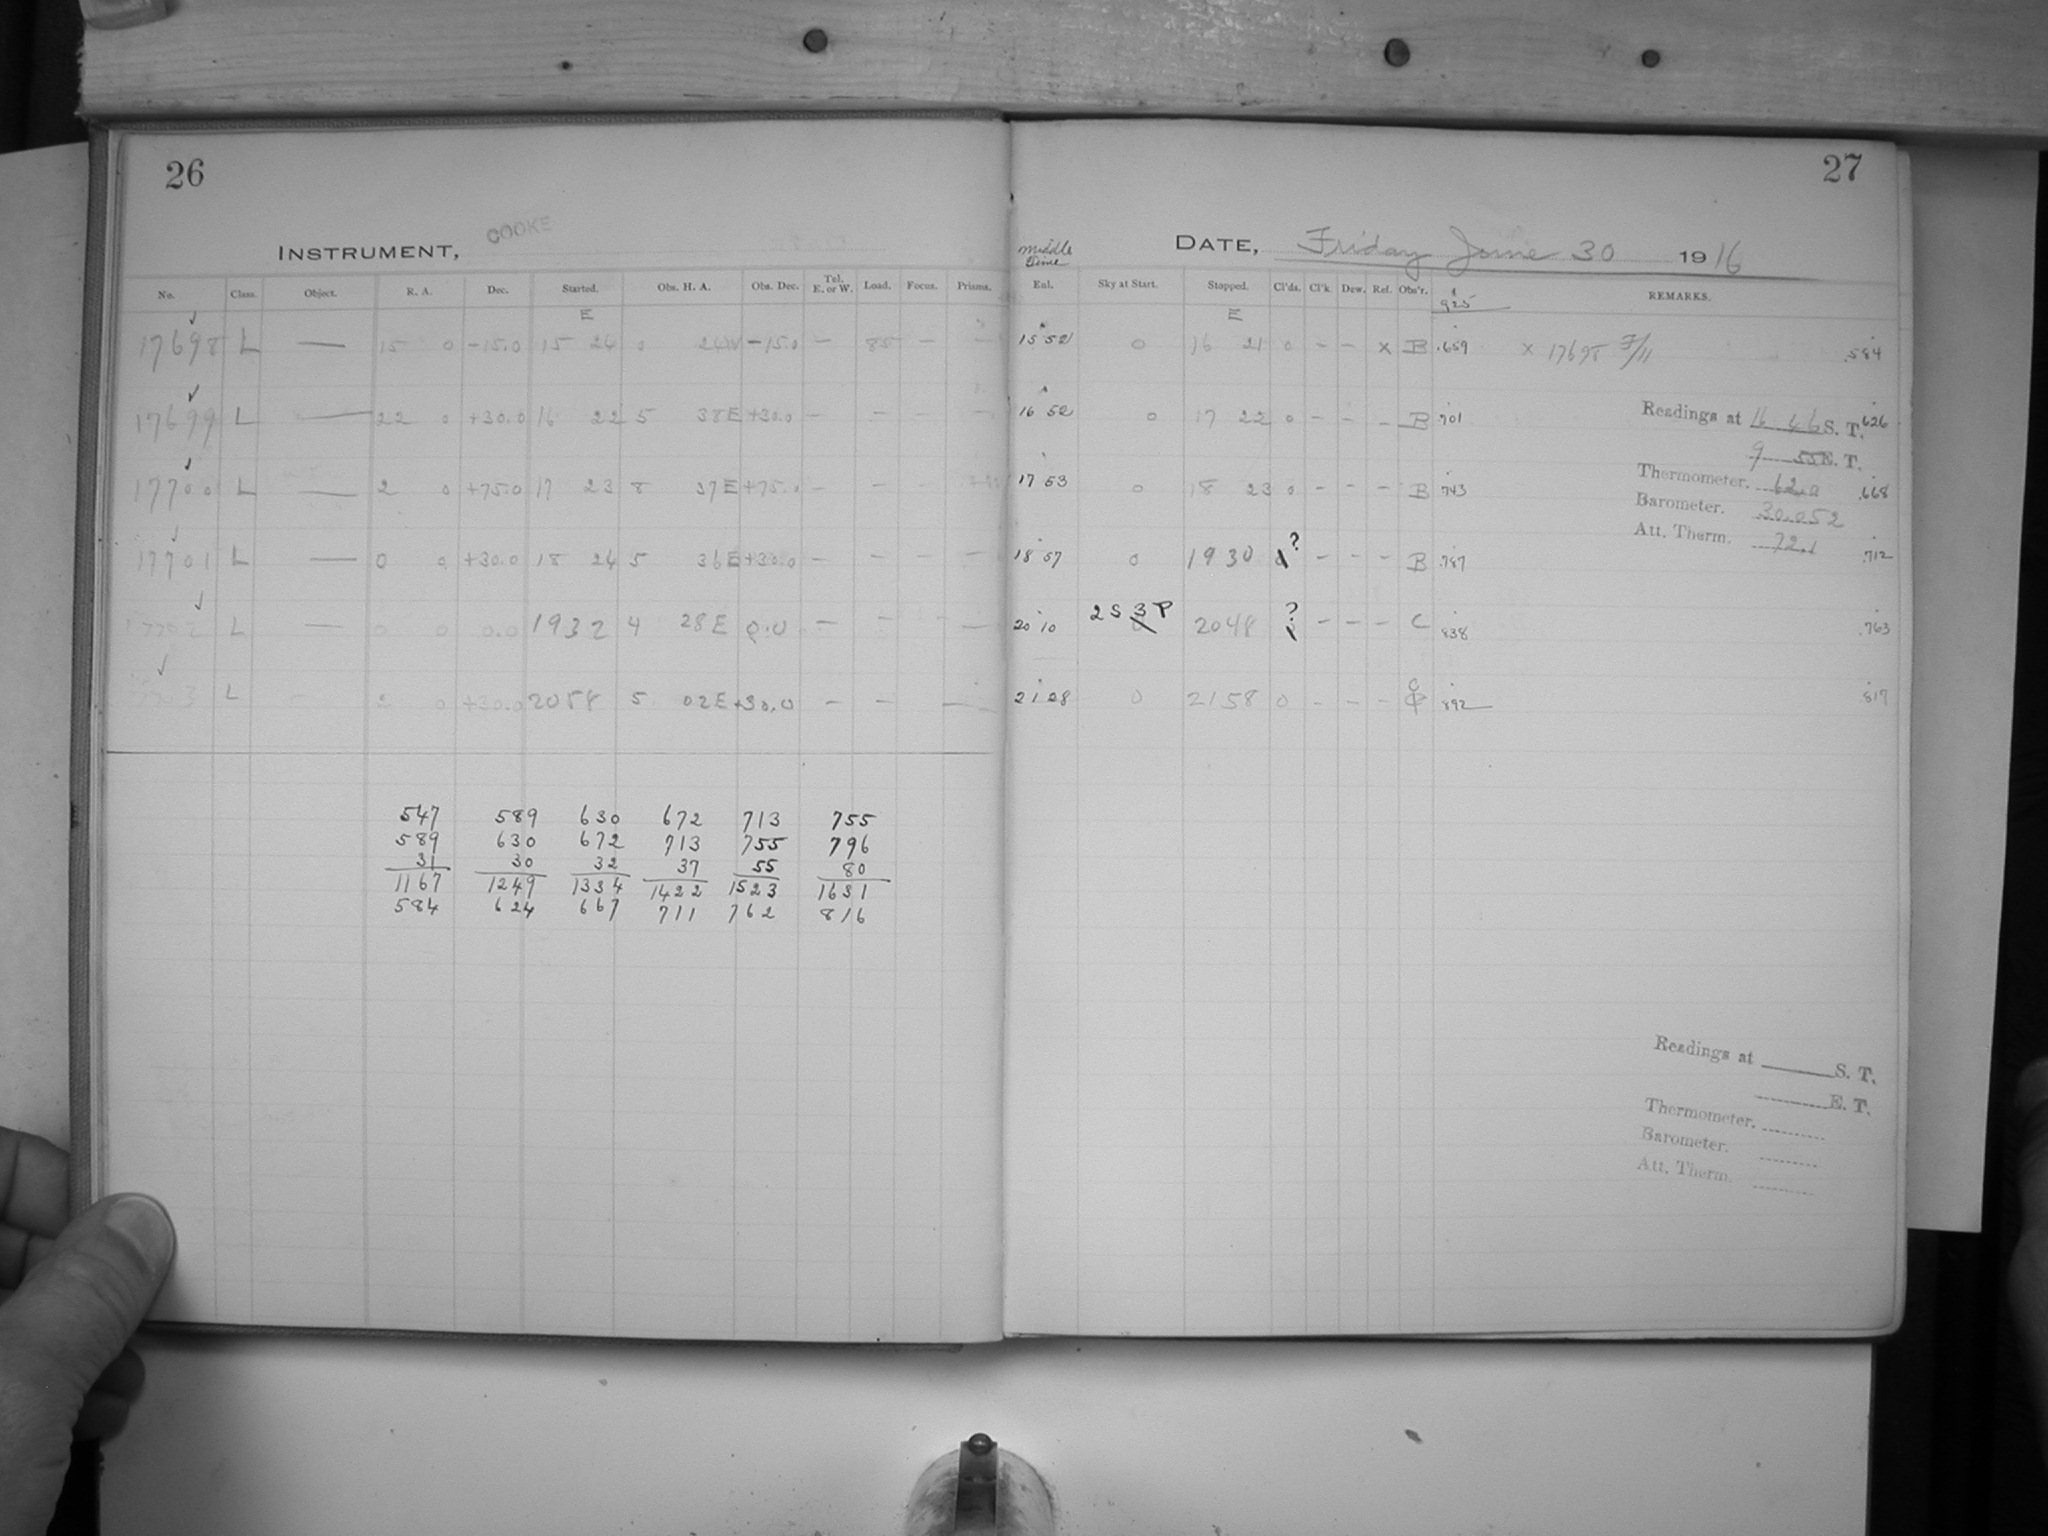 26
INSTRUMENT, COOKE
No. Class. Object. R. A. Dec. Started. Obs. H. A. Obs. Dec. Tel. E. or W. Load. Focus. Prisms.
E
17698 L — 15 0 -15.0 15 24 0 24W -15.0 — 85 — —
17699 L — 22 0 +30.0 16 22 5 38E +30.0 — — — —
17700 L — 2 0 +75.0 17 23 8 37E +75.0 — — —
17701 L — 0 0 +30.0 18 24 5 36E +30.0 — — — —
17702 L — 0 0 0.0 1932 4 28E 0.0 — — — —
L 2 0 +30.0 2058 5 02E +30.0 — — —
547 589 630 672 713 755
589 630 672 713 755 796
31 30 32 37 55 80
1167 1249 1334 1422 1523 1631
584 624 667 711 762 816
27
DATE, Friday June 30 1916
Middle Time
Eul. Sky at Start. Stopped. Cl'ds. Cl'k. Dew. Ref. Obs'r. 925 REMARKS.
E
15 52 0 16 21 0 - - x B .659 x 17698 F/11 .584
16 52 0 17 22 0 - - - B 701 .626
Readings at 16 46 S. T.
9 55 E. T.
17 53 0 18 23 0 - - - B 743 .668
Thermometer. 62.0
Barometer. 30.052
Att. Therm. 72.1
18 57 0 1930 ? - - - B .787 .712
20 10 2 S 3 P 2048 ? - - - C 838 .763
21 28 0 2158 0 - - - C 892 817
Readings at S. T.
E. T.
Thermometer.
Barometer.
Att. Therm.